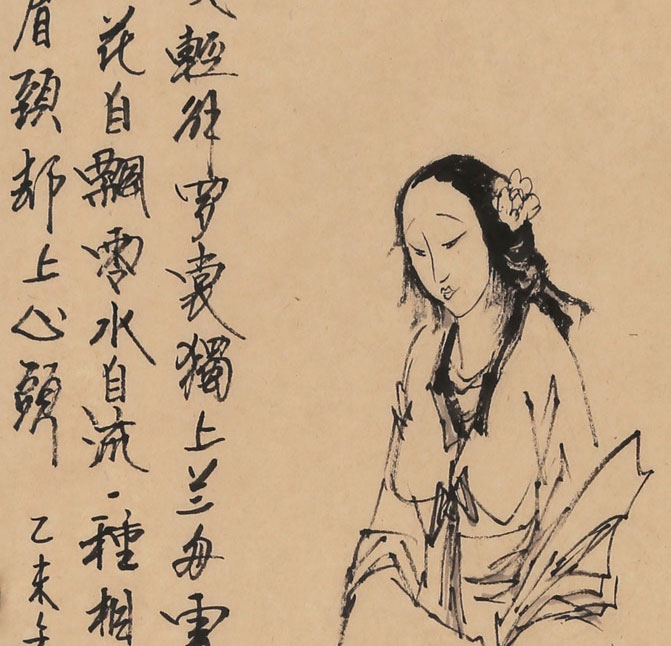 輕解罗裳獨上兰舟雲
花自飄零水自流一種相
眉頭却上心頭
乙未年